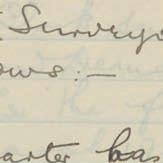 Surveyo
ows:—
arter ba